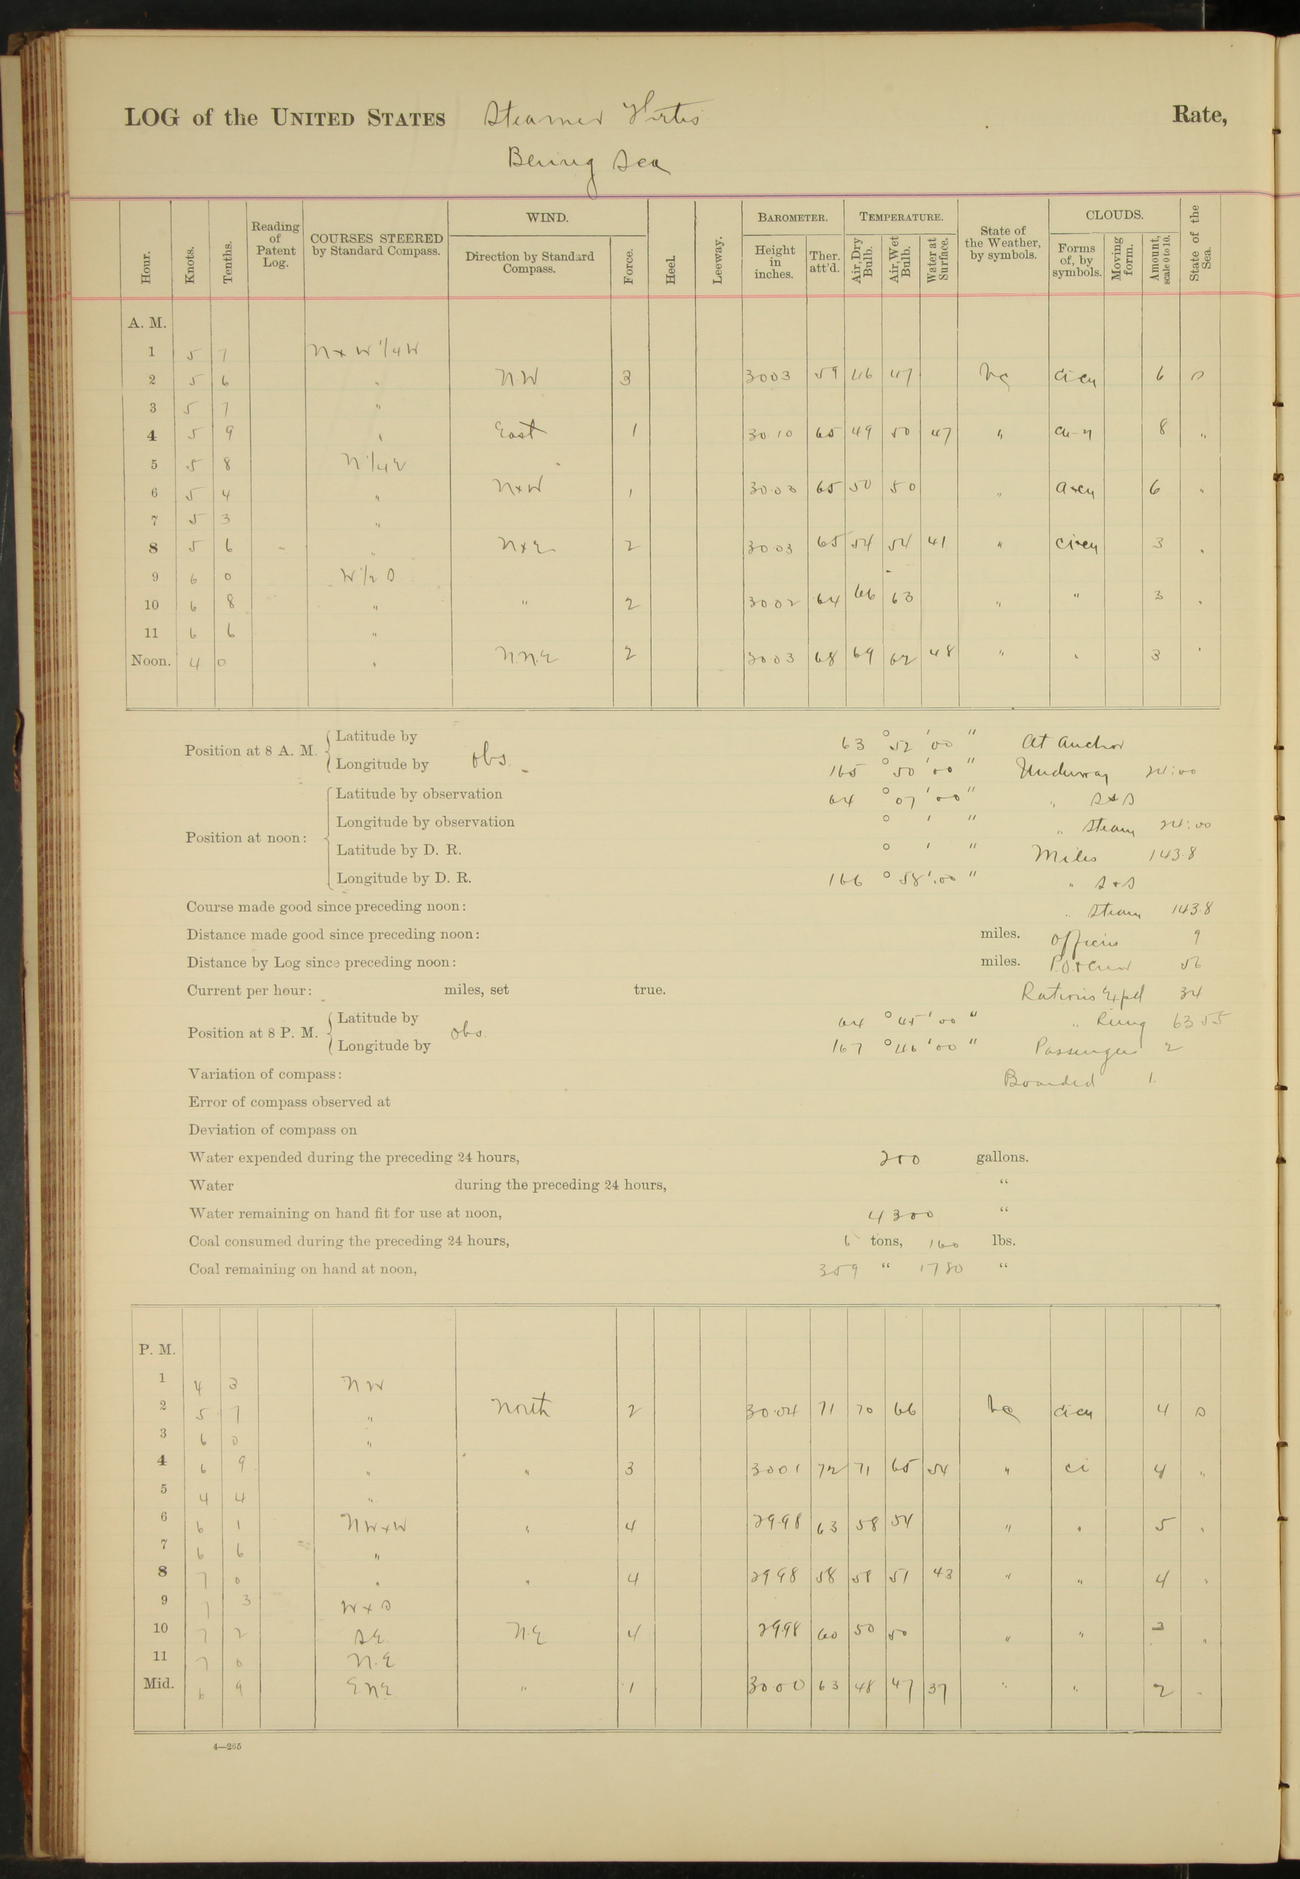 LOG of the UNITED STATES Steamer Thetis Rate,
Bering Sea
Hour. Knots. Tenths. Reading of Patent Log. COURSES STEERED by Standard Compass. WIND. Direction by Standard Compass. Force. Heel. Leeway. BAROMETER. Height in inches. Ther. att'd. TEMPERATURE. Air, Dry Bulb. Air, Wet Bulb. Water at Surface. State of the Weather, by symbols. CLOUDS. Forms of, by symbols. Moving form. Amount, scale 0 to 10. State of the Sea.
A. M.
1 5 7 N x W 1/4 W
2 5 6 " NW 3 3003 59 46 47 bc ci cu 6 S
3 5 7 "
4 5 9 " East 1 30 10 65 49 50 47 " cu-n 8 "
5 5 8 N 1/4 E
6 5 4 " NxW 1 30.03 65 50 50 " 6 "
7 5 3 "
8 5 6 " NxE 2 3003 65 54 54 41 " ci cu 3 "
9 6 0 W 1/2 S
10 6 8 " " 2 3002 64 66 63 " " 3 "
11 6 6 "
Noon. 4 0 " N.N.E 2 3003 68 69 62 48 " " 3 "
Position at 8 A. M. Latitude by obs. 63 ° 52 ' 00 " At anchor
Longitude by 165 ° 50 ' 00 " Underway 24:00
Position at noon: Latitude by observation 64 ° 07 ' 00 " " S & S
Longitude by observation ° ' " " Steam 24:00
Latitude by D. R. ° ' " Miles 143.8
Longitude by D. R. 166 ° 58 ' 00 " " S & S
Course made good since preceding noon: " Steam 143.8
Distance made good since preceding noon: miles. Officers 9
Distance by Log since preceding noon: miles. P.O & Crew 56
Current per hour: miles, set true. Rations Expd 34
Position at 8 P. M. Latitude by obs. 64 ° 45 ' 00 " " Rmng 6355
Longitude by 167 ° 46 ' 00 " Passengers 2
Variation of compass: Boarded 1.
Error of compass observed at
Deviation of compass on
Water expended during the preceding 24 hours, 200 gallons.
Water during the preceding 24 hours, "
Water remaining on hand fit for use at noon, 4300 "
Coal consumed during the preceding 24 hours, 6 tons, 160 lbs.
Coal remaining on hand at noon, 359 " 1780 "
P. M.
1 4 3 NW
2 5 7 " North 2 30.04 71 70 66 bc ci cu 4 S
3 6 0 "
4 6 9 " " 3 3001 72 71 65 54 " ci 4 "
5 4 4 "
6 6 1 NWxW " 4 2998 63 58 54 " " 5 "
7 6 6 "
8 7 0 " " 4 2998 58 51 43 " " 4 "
9 7 3 W x S
10 7 2 SE N.E 4 2998 60 50 50 " " "
11 7 0 N.E
Mid. 6 9 ENE " 1 3000 63 48 47 37 " " 2 "
4—265